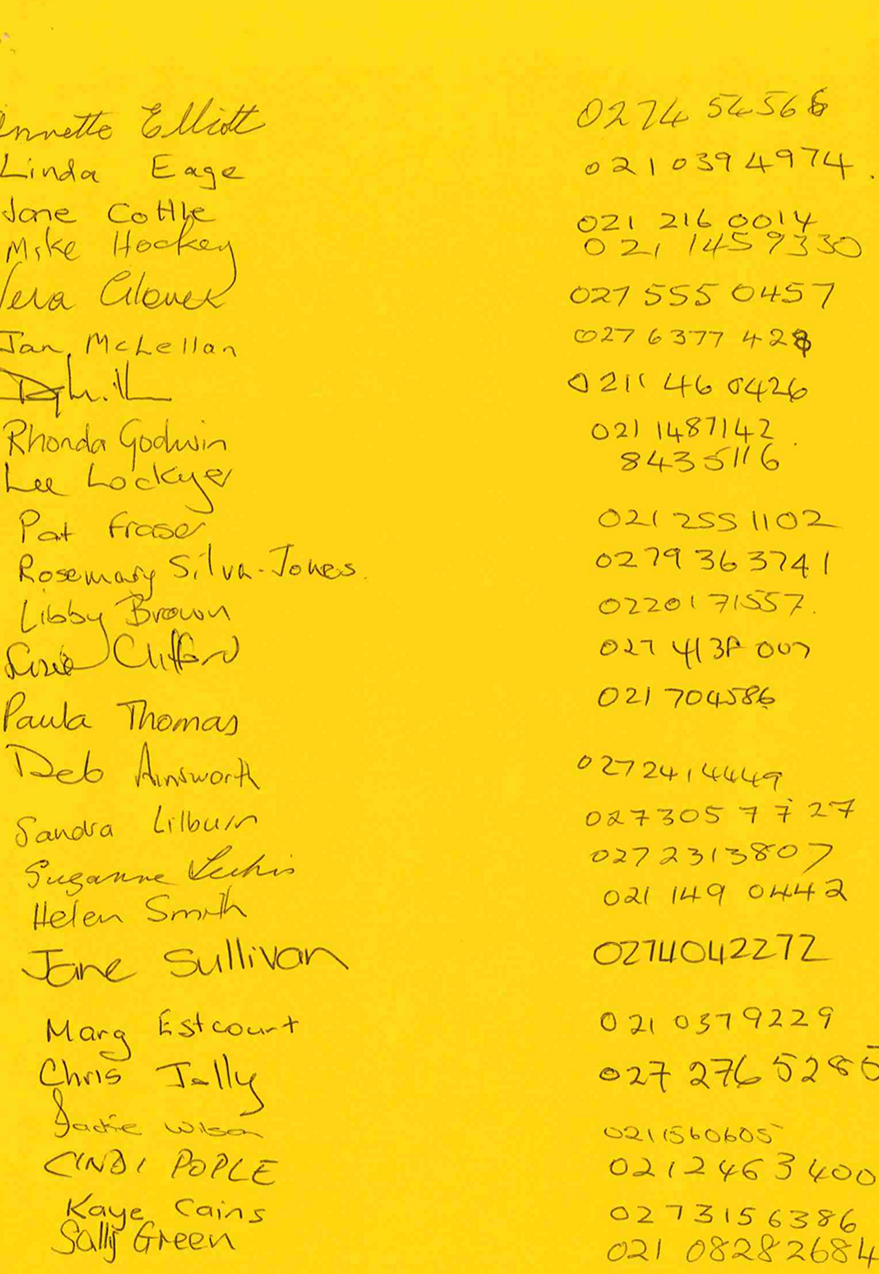 Annette Elliott 0274 545668
Linda Eage 021 0394974
Jane Cottle 021 216 0014
Mike Hockey 021 1459330
Vera Glover 027 555 0457
Jan McLellan 027 6377 428
0211 460426
Rhonda Godwin 021 1487142
Lee Lockyer 8435116
Pat Fraser 021 255 1102
Rosemary Silva-Jones. 0279 363741
Libby Brown 0220171557.
Clifford 027
Paula Thomas 021 704586
Deb Ainsworth 0272414449
Sandra Lilburn 027305 7727
Suzanne 0272313807
Helen Smith 021 149 0442
Jane Sullivan 0274042272
Marg Estcourt 021 0379229
Chris Jolly 027 276 5285
Jackie Wilson 0211560605
CINDI POPLE 0212463400
Kaye Cains 0273156386
Sally Green 021 08282684